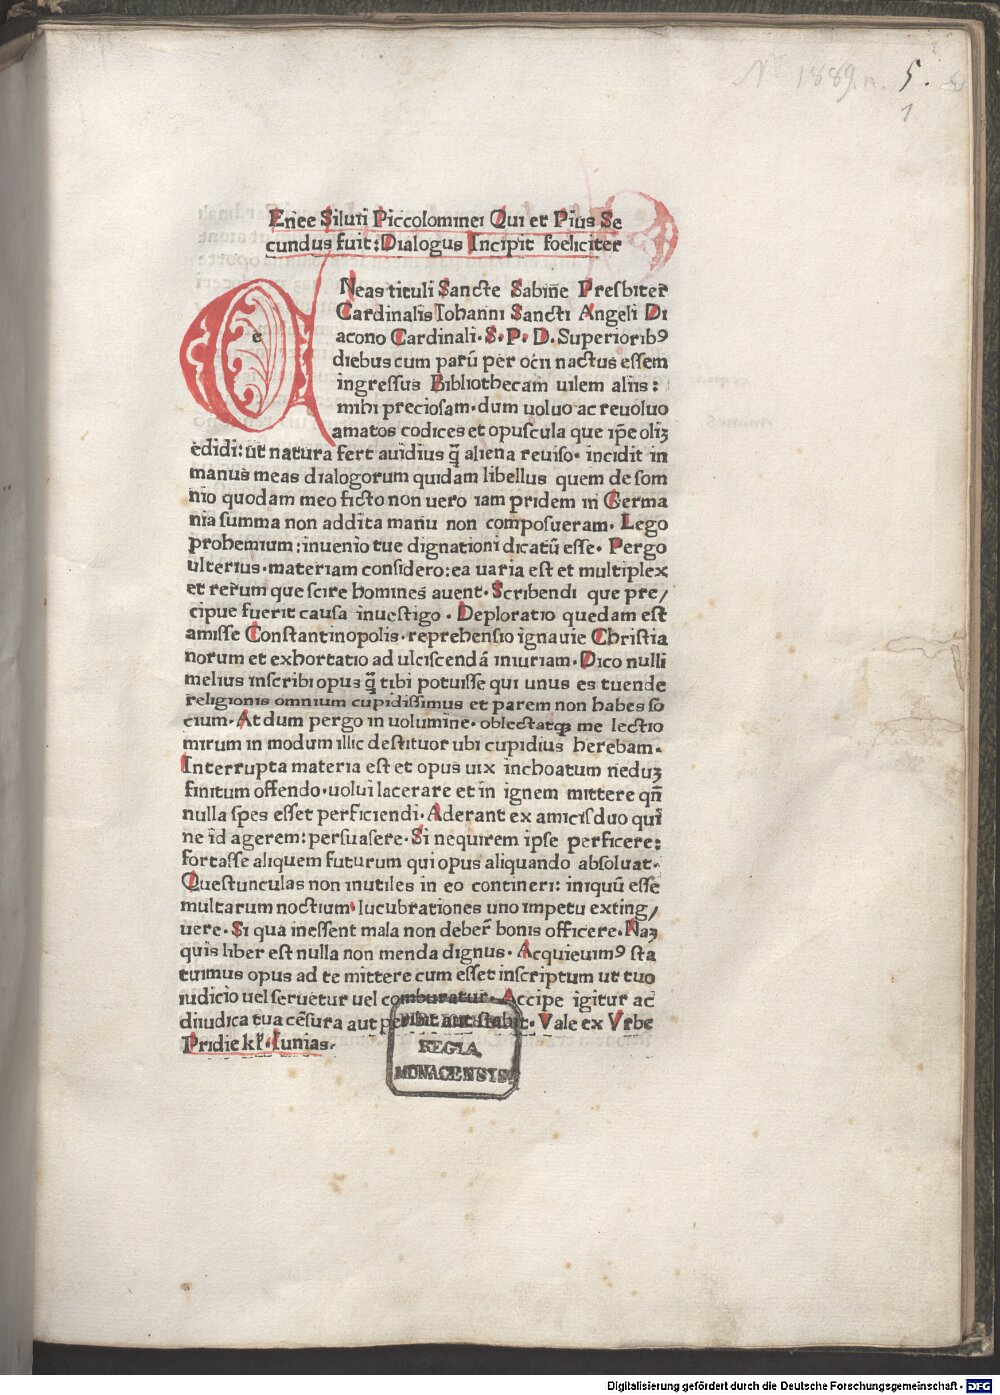 Nº 1889.n. 5.
1
Enee Siluii Piccolominei Qui et Pius Se
cundus fuit: Dialogus Incipit foeliciter
e
Neas tituli Sancte Sabiñe Presbiter
Cardinalis Iohanni Sancti Angeli Di
acono Cardinali. S. P. D. Superiorib⁹
diebus cum parū per ocii nactus essem
ingressus Bibliothecam uilem aliis:
mihi preciosam. dum uoluo ac reuoluo
amatos codices et opuscula que ip̄e oliꝫ
edidi: ut natura fert auidius q̄ aliena reuiso. incidit in
manus meas dialogorum quidam libellus quem de som
nio quodam meo ficto non uero iam pridem in Germa
nia summa non addita manu non composueram. Lego
prohemium: inuenio tue dignationi dicatū esse. Pergo
ulterius. materiam considero: ea uaria est et multiplex
et rerum que scire homines auent. Scribendi que pre/
cipue fuerit causa inuestigo. Deploratio quedam est
amisse Constantinopolis. reprehensio ignauie Christia
norum et exhortatio ad ulciscendā iniuriam. Dico nulli
melius inscribi opus q̄ tibi potuisse qui unus es tuende
religionis omnium cupidissimus et parem non habes so
cium. At dum pergo in uolumine. oblectatꝙ me lectio
mirum in modum illic destituor ubi cupidius herebam.
Interrupta materia est et opus uix inchoatum neduꝫ
finitum offendo. uolui lacerare et in ignem mittere qn̄
nulla spes esset perficiendi. Aderant ex amicis duo qui
ne id agerem: persuasere. Si nequirem ipse perficere:
fortasse aliquem futurum qui opus aliquando absoluat.
Questunculas non inutiles in eo contineri: iniquū esse
multarum noctium lucubrationes uno impetu exting/
uere. Si qua inessent mala non deber̄ bonis officere. Naꝫ
quis liber est nulla non menda dignus. Acquieuim⁹ sta
tuimus opus ad te mittere cum esset inscriptum ut tuo
iudicio uel seruetur uel comburatur. Accipe igitur ac
diiudica tua cēsura aut peribit aut stabit. Vale ex Vrbe
Pridie kl̄. Iunias.
REGIA
MONACENSIS.
Digitalisierung gefördert durch die Deutsche Forschungsgemeinschaft - DFG